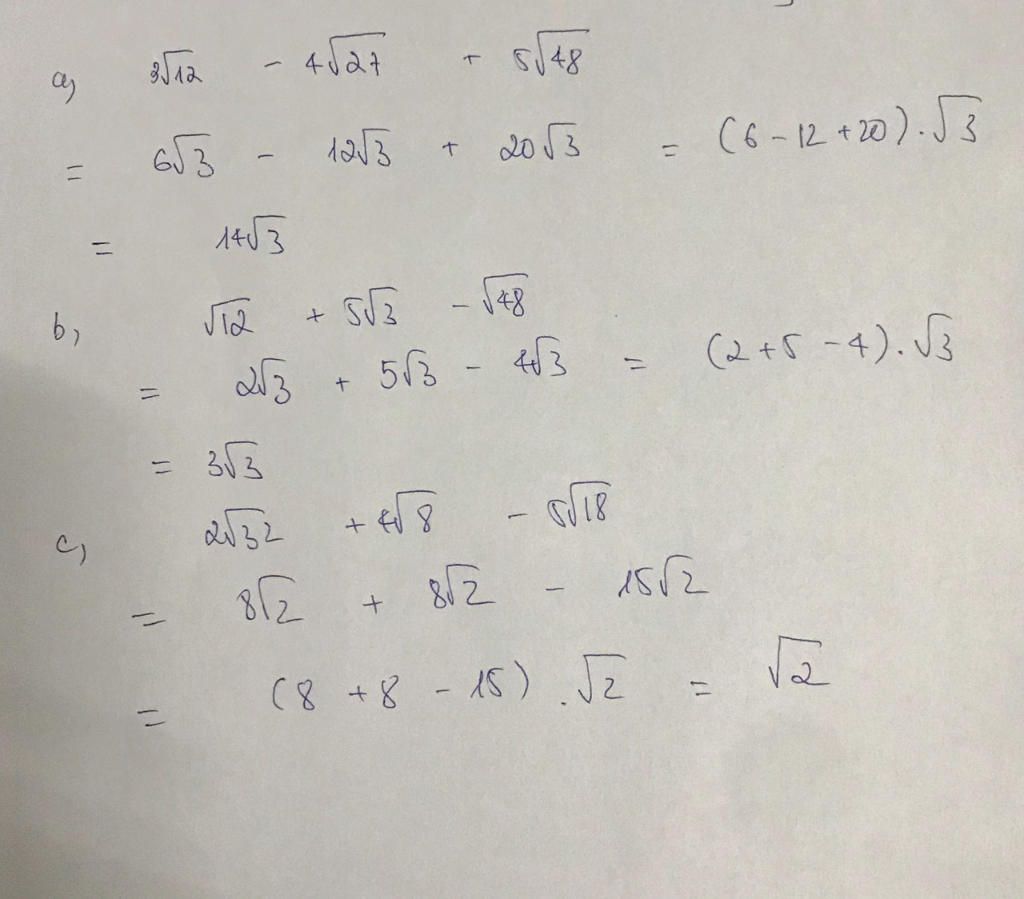 a, 3√12 - 4√27 + 5√48
= 6√3 - 12√3 + 20√3 = (6 - 12 + 20).√3
= 14√3
b, √12 + 5√3 - √48
= 2√3 + 5√3 - 4√3 = (2 + 5 - 4).√3
= 3√3
c, 2√32 + 4√8 - 5√18
= 8√2 + 8√2 - 15√2
= (8 + 8 - 15).√2 = √2